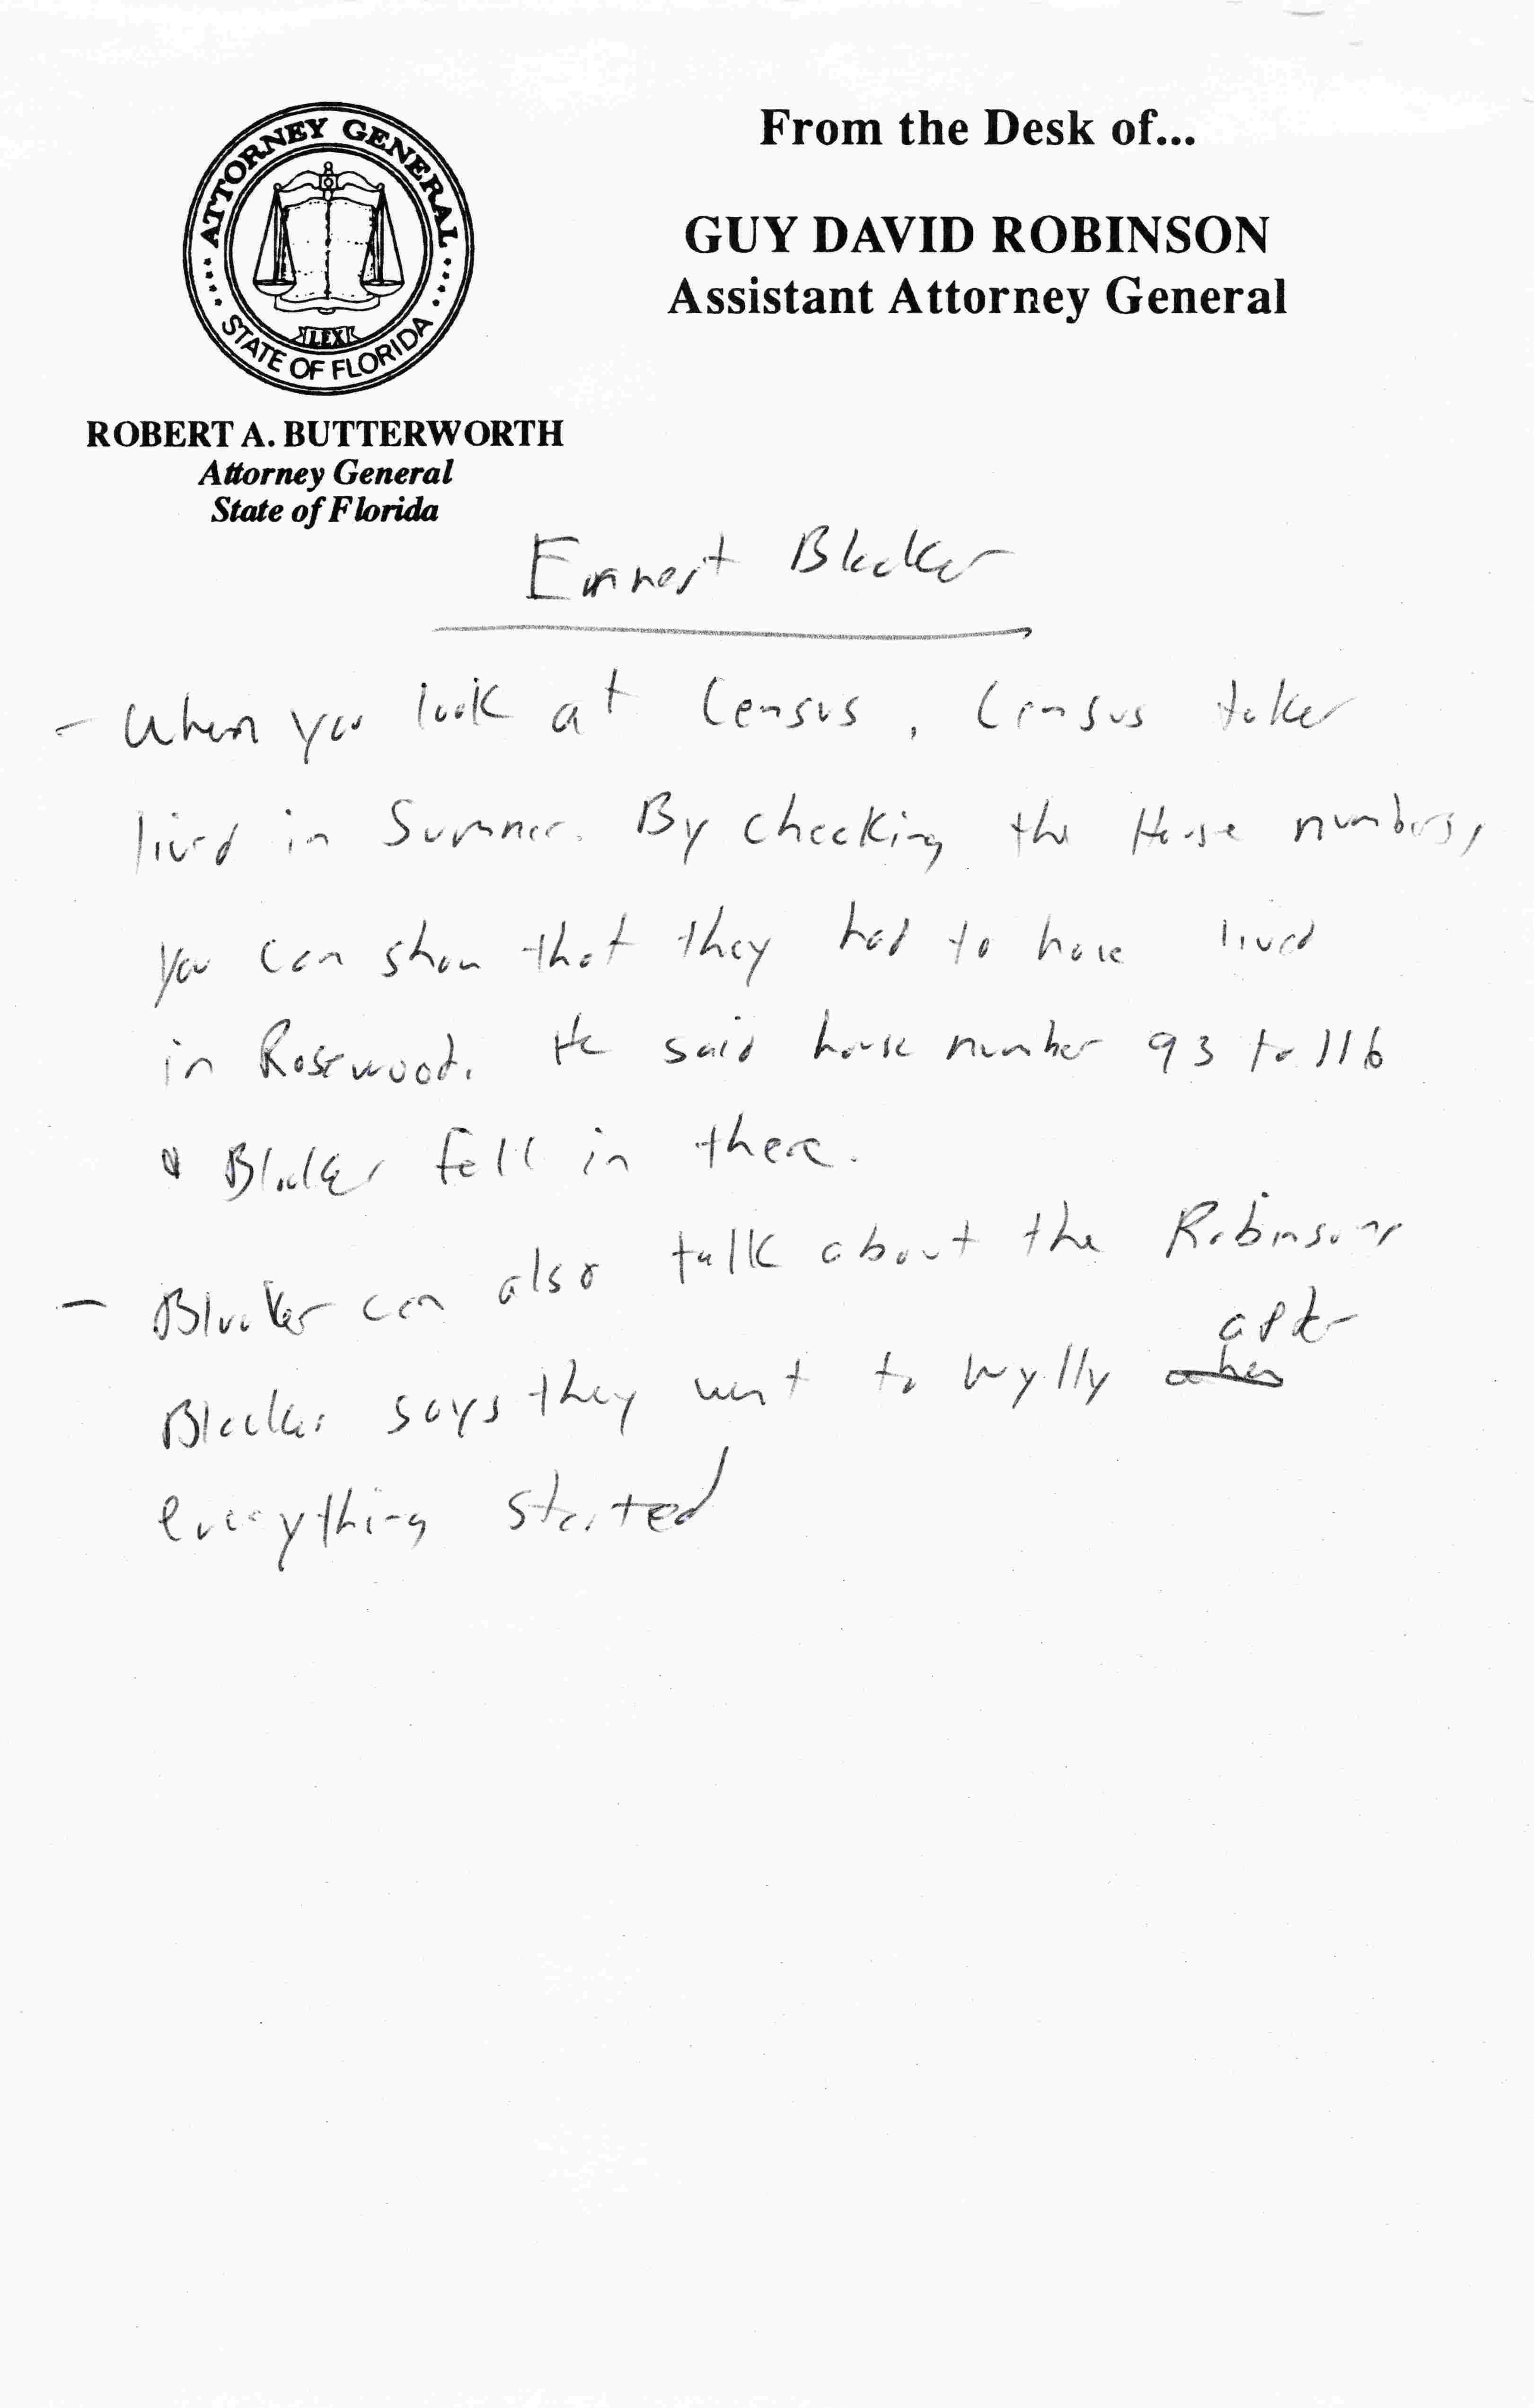 ATTORNEY GENERAL
STATE OF FLORIDA
LEX
ROBERT A. BUTTERWORTH
Attorney General
State of Florida
From the Desk of...
GUY DAVID ROBINSON
Assistant Attorney General
Ernnest Blocker
- When you look at Census, Census taker
lived in Sumner. By checking the House numbers,
you can show that they had to have lived
in Rosewood. He said house number 93 to 116
& Blocker fell in there.
- Blocker can also talk about the Robinsons
after
Blocker says they went to Wylly when
everything started